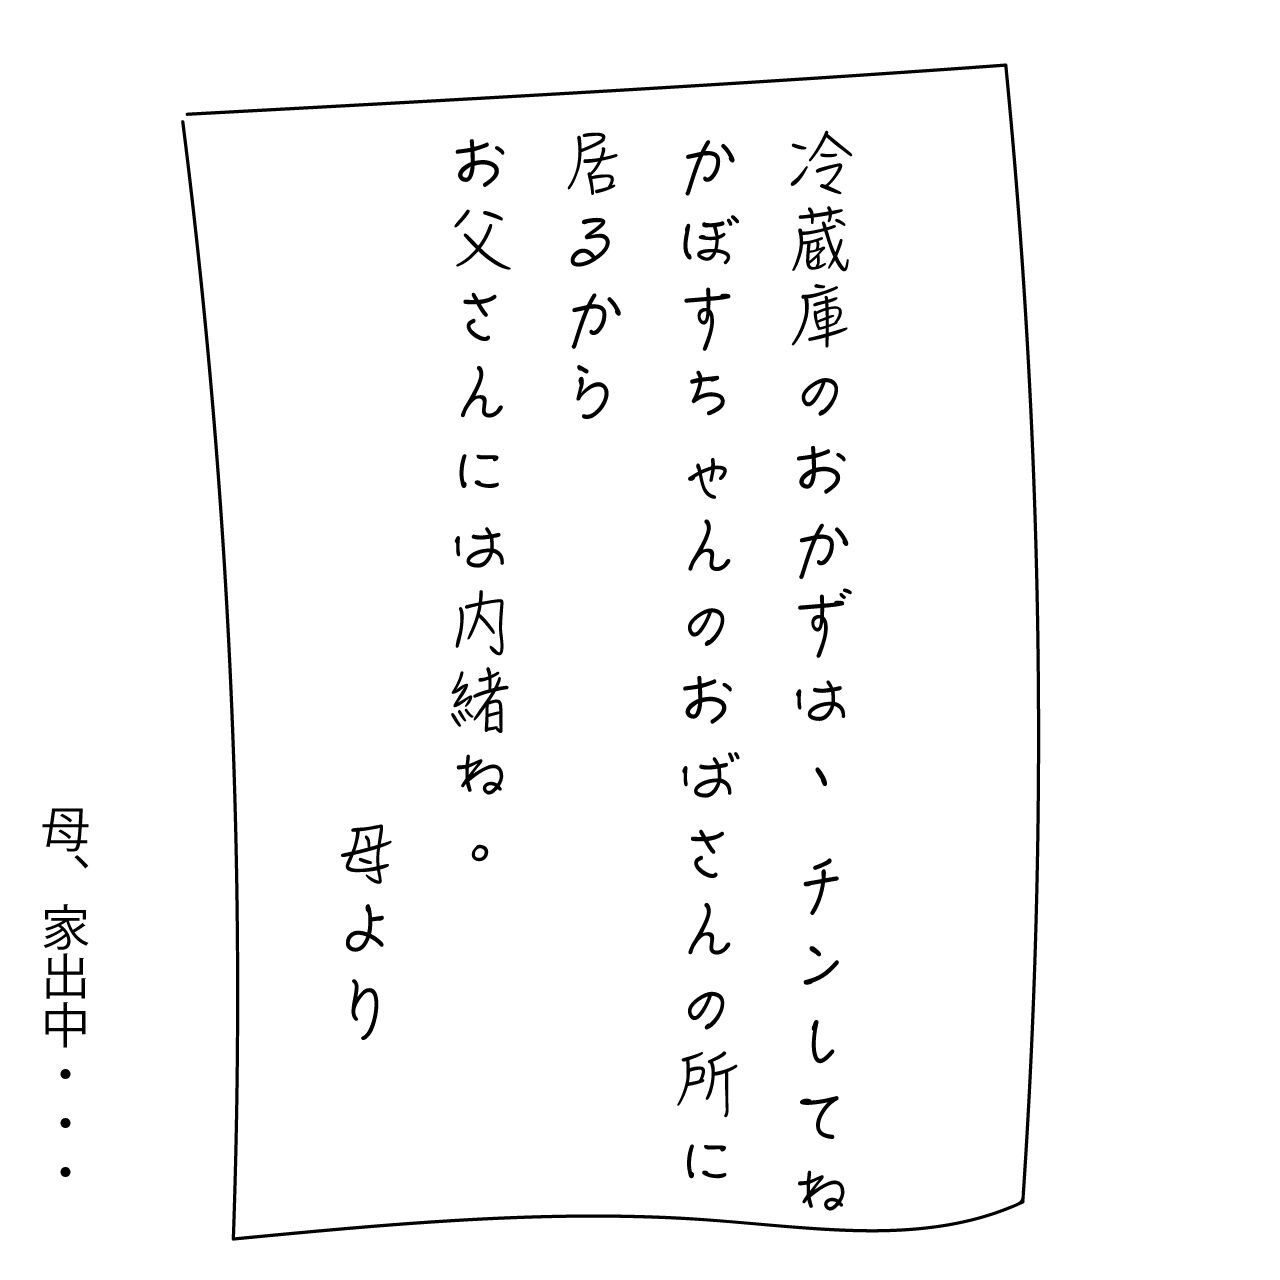 冷蔵庫のおかずは、チンしてね
かぼすちゃんのおばさんの所に
居るから
お父さんには内緒ね。
母より
母、家出中・・・